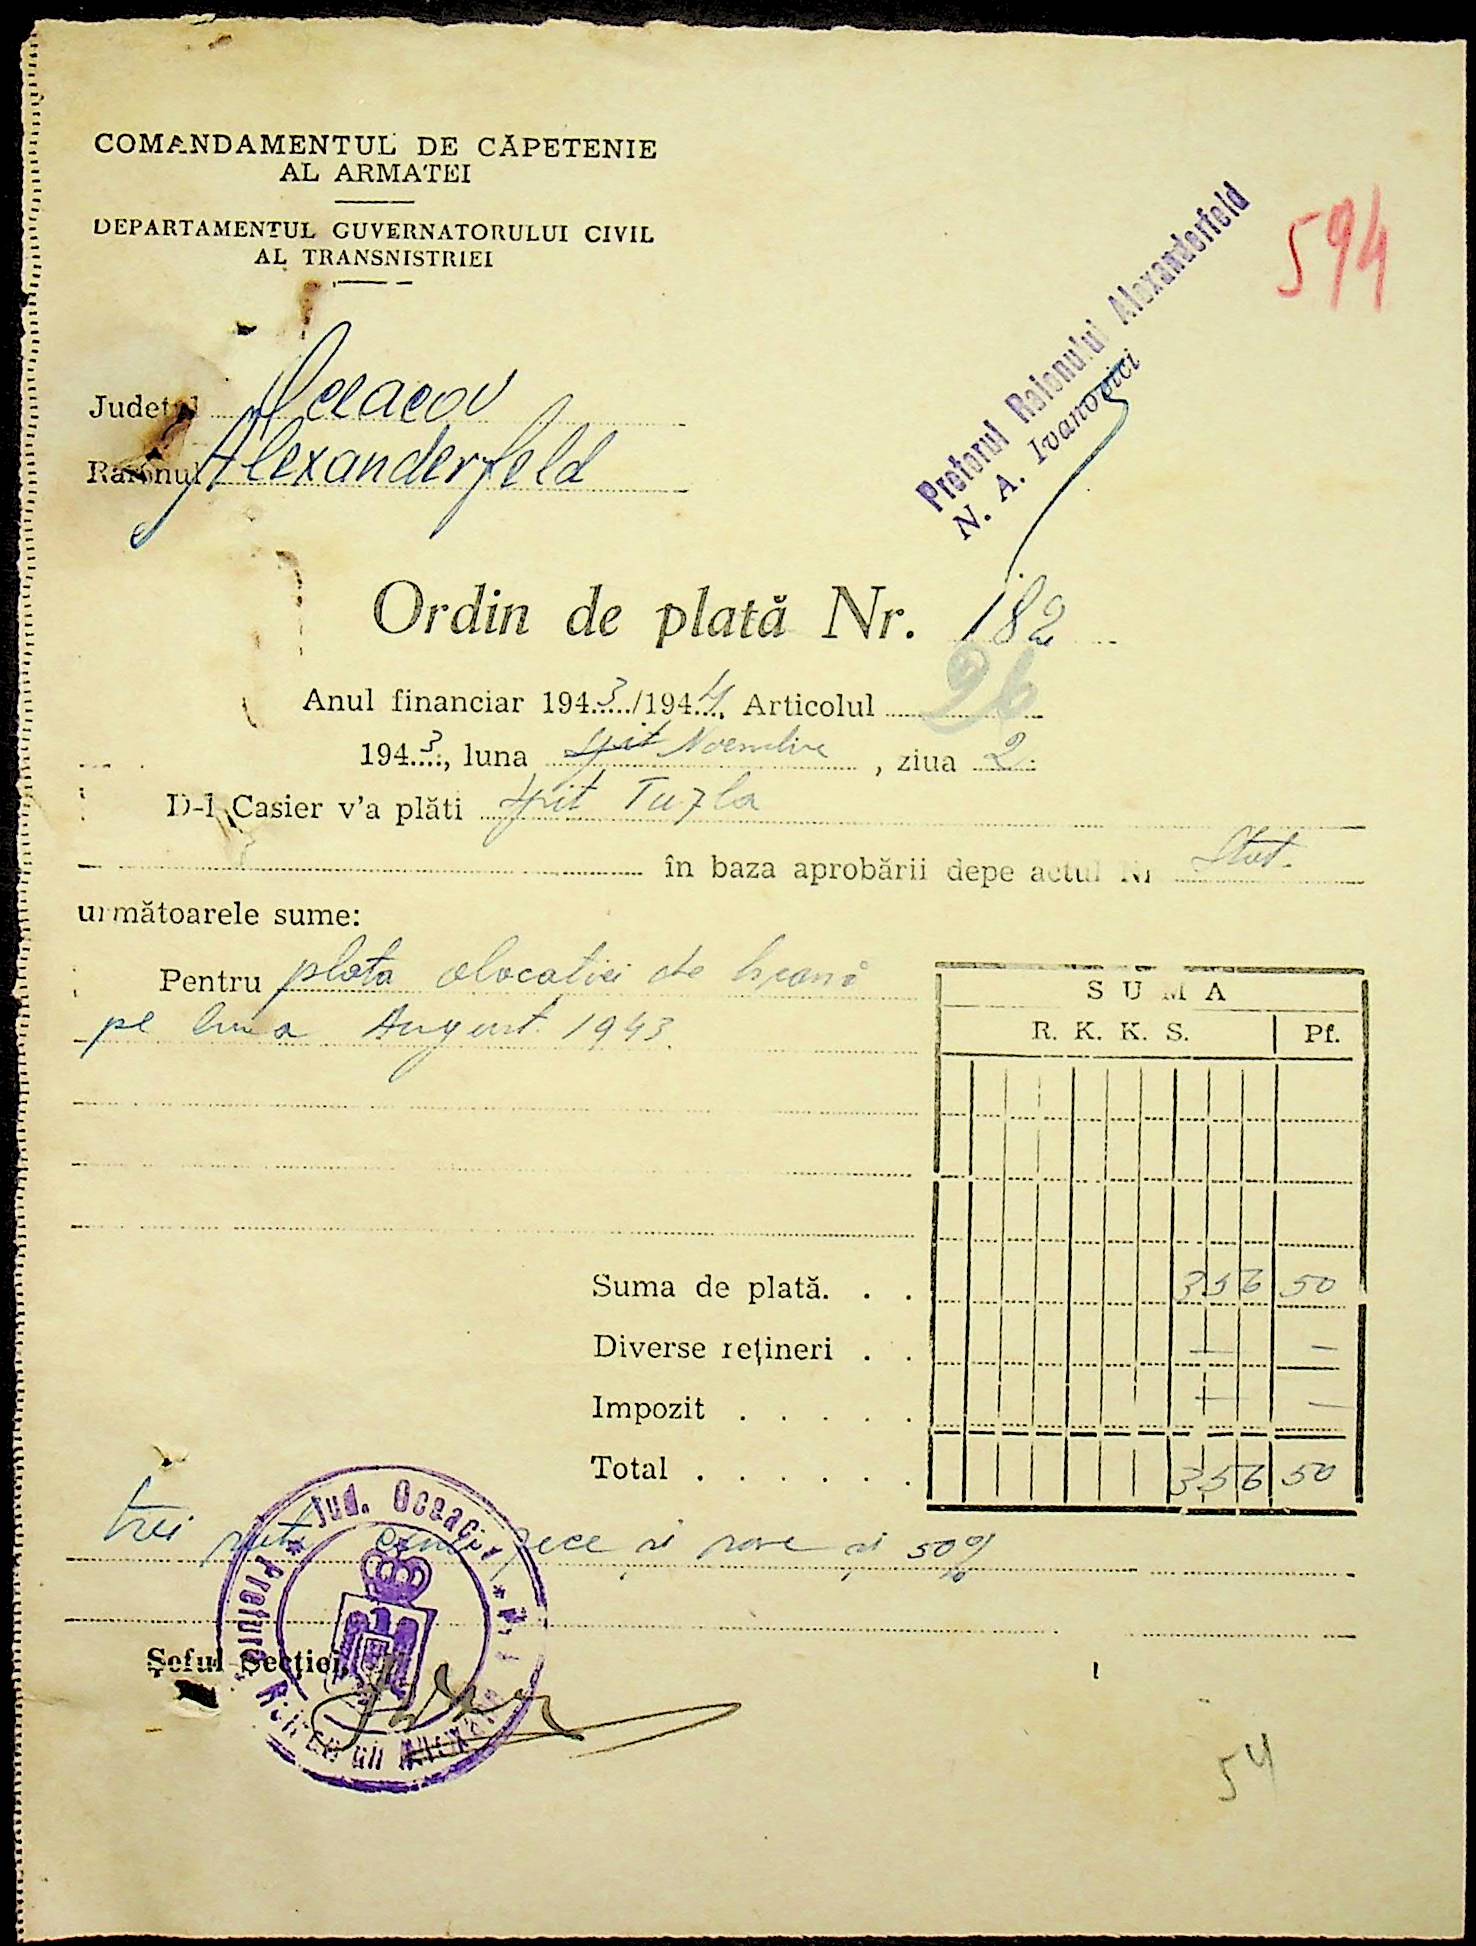 COMANDAMENTUL DE CĂPETENIE
AL ARMATEI
DEPARTAMENTUL GUVERNATORULUI CIVIL
AL TRANSNISTRIEI
594
Pretorul Raionului Alexanderfeld
N. A. Ivanovici
Județul Oceacov
Raionul Alexanderfeld
Ordin de plată Nr. 182
26
Anul financiar 1943/1944, Articolul
1943, luna Noembrie, ziua 2
D-l Casier v'a plăti Tuzla
în baza aprobării depe actul Nr Stat.
următoarele sume:
Pentru plata alocatiei de hrană
pe luna August. 1943.
SUMA
R. K. K. S. Pf.
Suma de plată. . . 356 50
Diverse rețineri . . — —
Impozit . . . . . — —
Total . . . . . . 356 50
trei sute și 50
Jud. Oceacov
Șeful Secției,
54